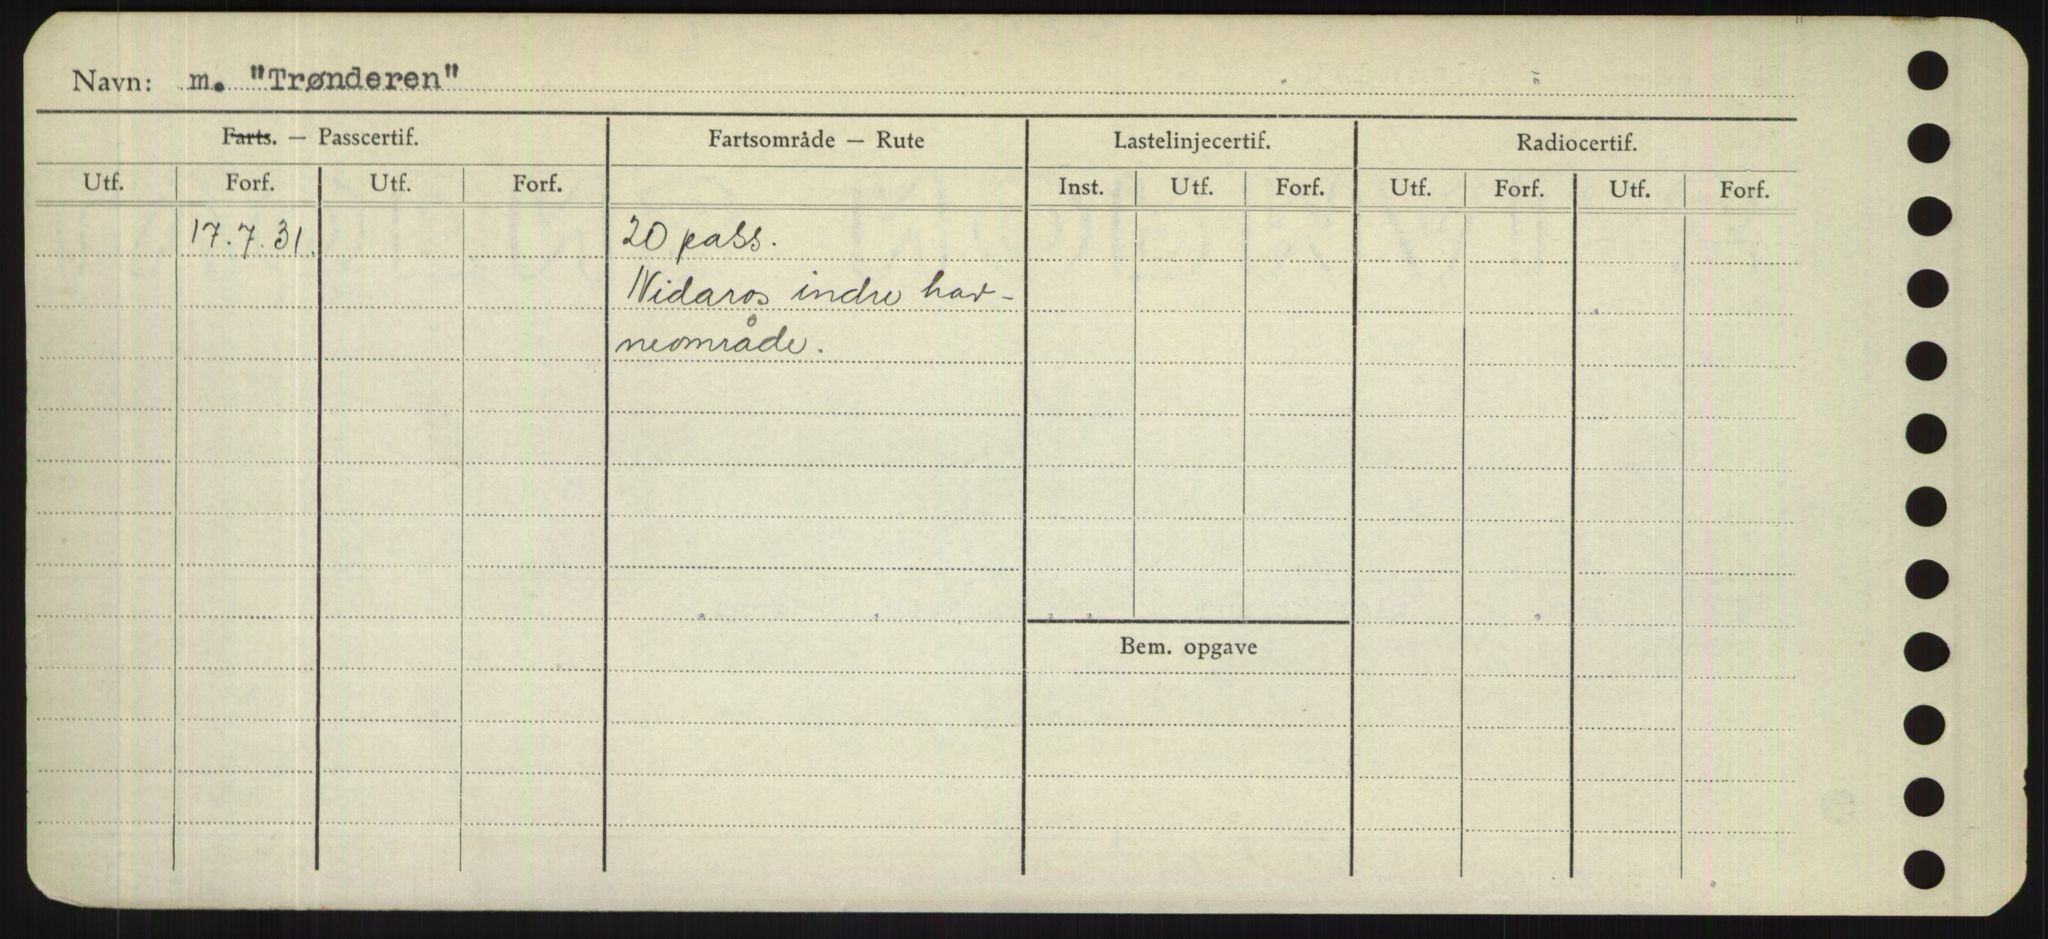 Navn: m. "Trønderen"
Farts. — Passcertif. Fartsområde — Rute Lastelinjecertif. Radiocertif.
Utf. Forf. Utf. Forf. Inst. Utf. Forf. Utf. Forf. Utf. Forf.
17.7.31. 20 pass.
Nidaros indre hav-
neområde.
Bem. opgave